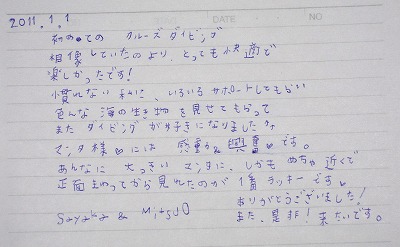 2011.1.1
DATE
NO
初めての クルーズダイビング
想像していたのより、とっても快適で
楽しかったです!
慣れない 私に、いろいろ サポートしてもらい
色んな 海の生き物を見せてもらって
また ダイビングが好きになりました♪
マンタ様♡には 感動&興奮♡です。
あんなに 大っきい マンタに、しかも めちゃ近くで
正面まわってから見れたのが1番ラッキーです♡
ありがとうございました!
Sayaka & MitsuO また、是非!来たいです。